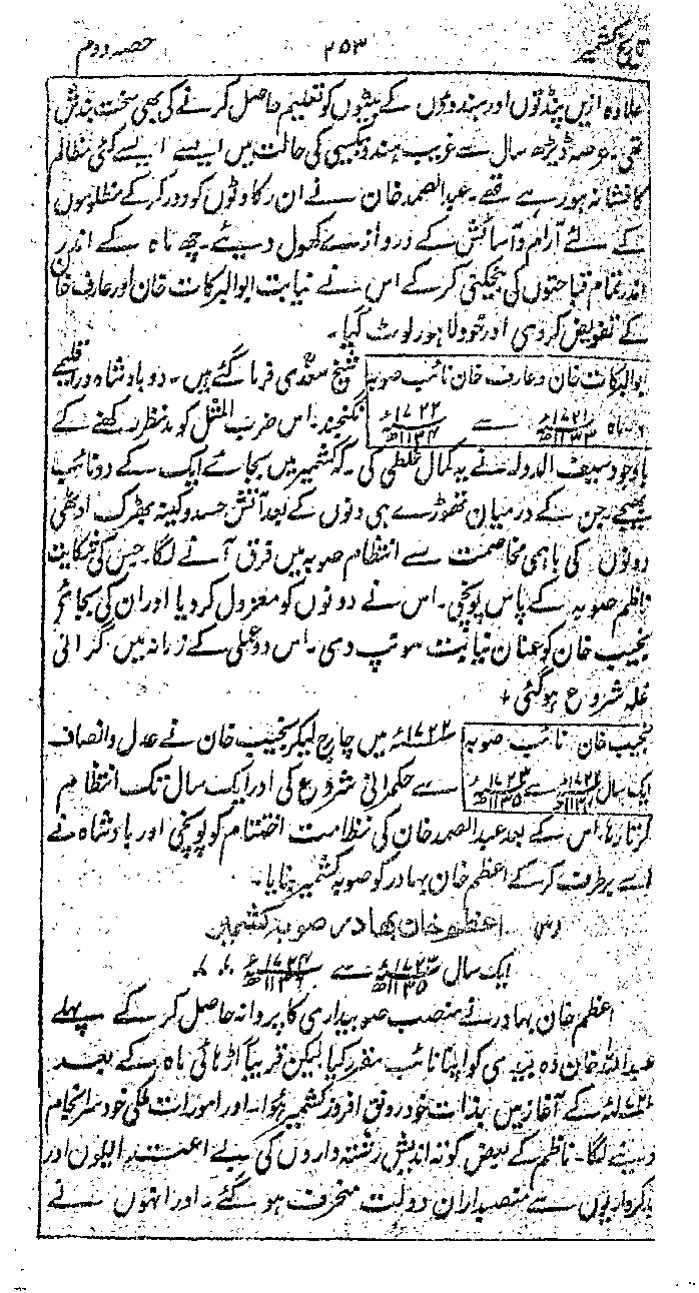 تاریخ کشمیر ۲۵۳ حصہ دوم
علاوہ ازیں پنڈتوں اور ہندوؤں کے بیٹوں کو تعلیم حاصل کرنے کی بھی سخت بندش
تھی۔ عرصہ ڈیڑھ سال سے غریب ہندو بیکسی کی حالت میں ایسے ایسے کئی مظالم
کا نشانہ ہو رہے تھے۔ عبدالصمد خان نے ان رکاوٹوں کو دور کر کے مظلوموں
کے لئے آرام و آسائش کے دروازے کھول دیئے۔ چھ ماہ کے اندر
اندر تمام قباحتوں کی بیخکنی کر کے اس نے نیابت ابوالبرکات خان اور عارف خان
کے تفویض کر دی اور خود لاہور لوٹ گیا۔
ابوالبرکات خان و عارف خان نائب صوبہ شیخ سعدی فرما گئے ہیں۔ دو بادشاہ در اقلیمے
ماہ ۱۷۲۱ء ۱۱۳۳ھ سے ۱۷۲۲ء ۱۱۳۴ھ نگنجند۔ اس ضرب المثل کو مدنظر رکھنے کے
باوجود سیف الدولہ نے یہ کمال غلطی کی۔ کہ کشمیر میں بجائے ایک کے دو نائب
بھیجے جن کے درمیان تھوڑے ہی دنوں کے بعد آتش حسد و کینہ بھڑک اوٹھی
دونوں کی باہمی مخاصمت سے انتظام صوبہ میں فرق آنے لگا۔ جس کی شکایت
ناظم صوبہ کے پاس پہونچی۔ اس نے دونوں کو معزول کر دیا اور ان کی بجائے
نجیب خان کو عنان نیابت سونپ دی۔ اس دوعملی کے زمانہ میں گرانی
غلہ شروع ہو گئی +
نجیب خان نائب صوبہ ۱۷۲۲ء میں چارج لیکر نجیب خان نے عدل و انصاف
ایک سال ۱۷۲۲ء ۱۱۳۴ھ سے ۱۷۲۳ء ۱۱۳۵ھ سے حکمرانی شروع کی اور ایک سال تک انتظام
کرتا رہا۔ اس کے بعد عبدالصمد خان کی نظامت اختتام کو پہونچی اور بادشاہ نے
اسے برطرف کر کے اعظم خان بہادر کو صوبہ کشمیر بنایا۔
اعظم خان بہادر صوبہ کشمیر
ایک سال ۱۷۲۳ء ۱۱۳۵ھ سے ۱۷۲۴ء ۱۱۳۶ھ
اعظم خان بہادر نے منصب صوبیداری کا پروانہ حاصل کر کے پہلے
عبداللہ خان دہ بیدی کو اپنا نائب مقرر کیا لیکن قریباً اڑھائی ماہ کے بعد
کے آغاز میں بذات خود رونق افروز کشمیر ہوا۔ اور امورات ملکی خود سرانجام
دینے لگا۔ ناظم کے بعض کوتہ اندیش رشتہ داروں کی بے اعتدالیوں اور
بدکرداریوں سے منصبداران دولت منحرف ہو گئے۔ اور انہوں نے